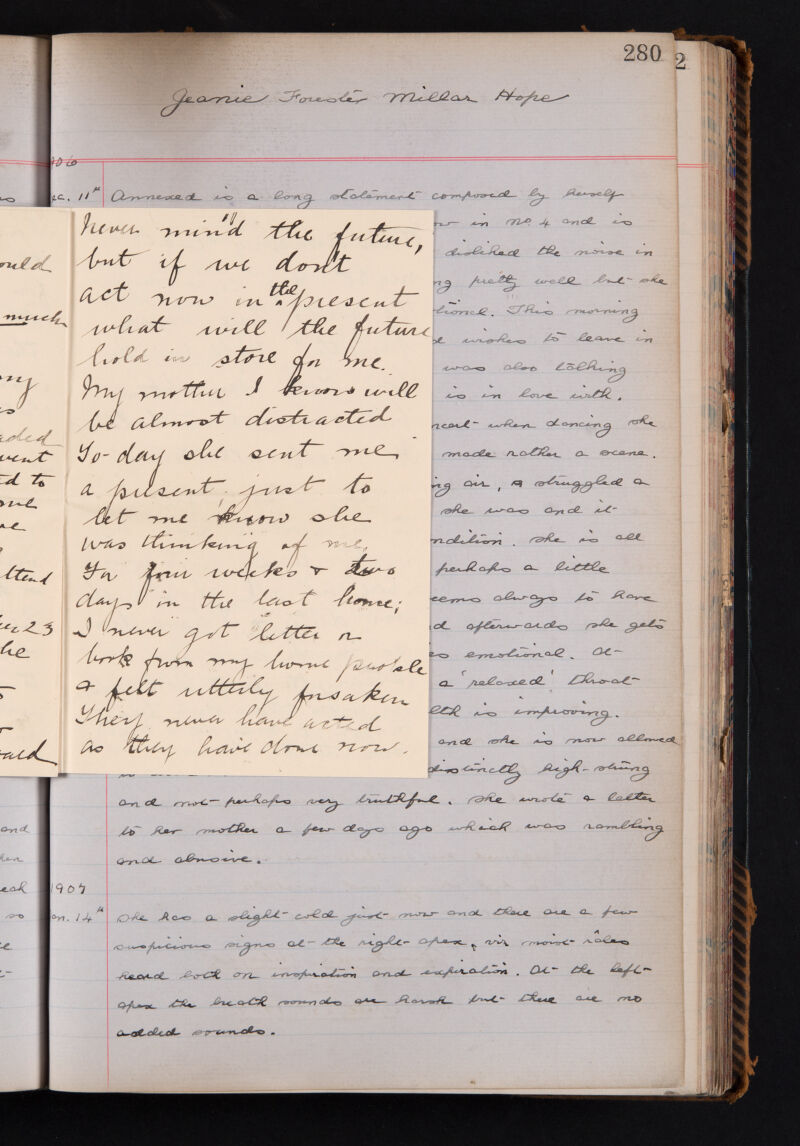 280
2
Jeanie Forester Millar Hope
1906
Dec. 11th Annexed is a long statement composed by herself
in No. 4 and is
disliked the noise in
pretty well but she
This morning
wishes to leave in
was also talking
is in love with.
when dancing she
made rather a scene.
air, & struggled a
she was and it
she is all
perhaps a little
always to have
afterwards she gets
emotional. At
a 'relaxed' throat
is improving.
and she is now allowed
distinctly high-strung
and not perhaps very truthful. She wrote a letter
to her mother a few days ago which was rambling
and abusive.
1907
Jan. 14th She has a slight cold just now and there are a few
suspicious signs at the right apex, viz moist râles
heard both on inspiration and expiration. At the left
apex the breath sounds are harsh but there are no
added sounds.
never mind the future,
but if we don't
act now in the present
what will the future
hold in store for me.
My mother I know will
be almost distracted
To-day she sent me
a present just to
let me know she
was thinking of me.
For four weeks & two
days in the last home;
I never got letter or
book from my home people
& felt utterly forsaken
They never have acted
as they have done now.
much
23
and
so